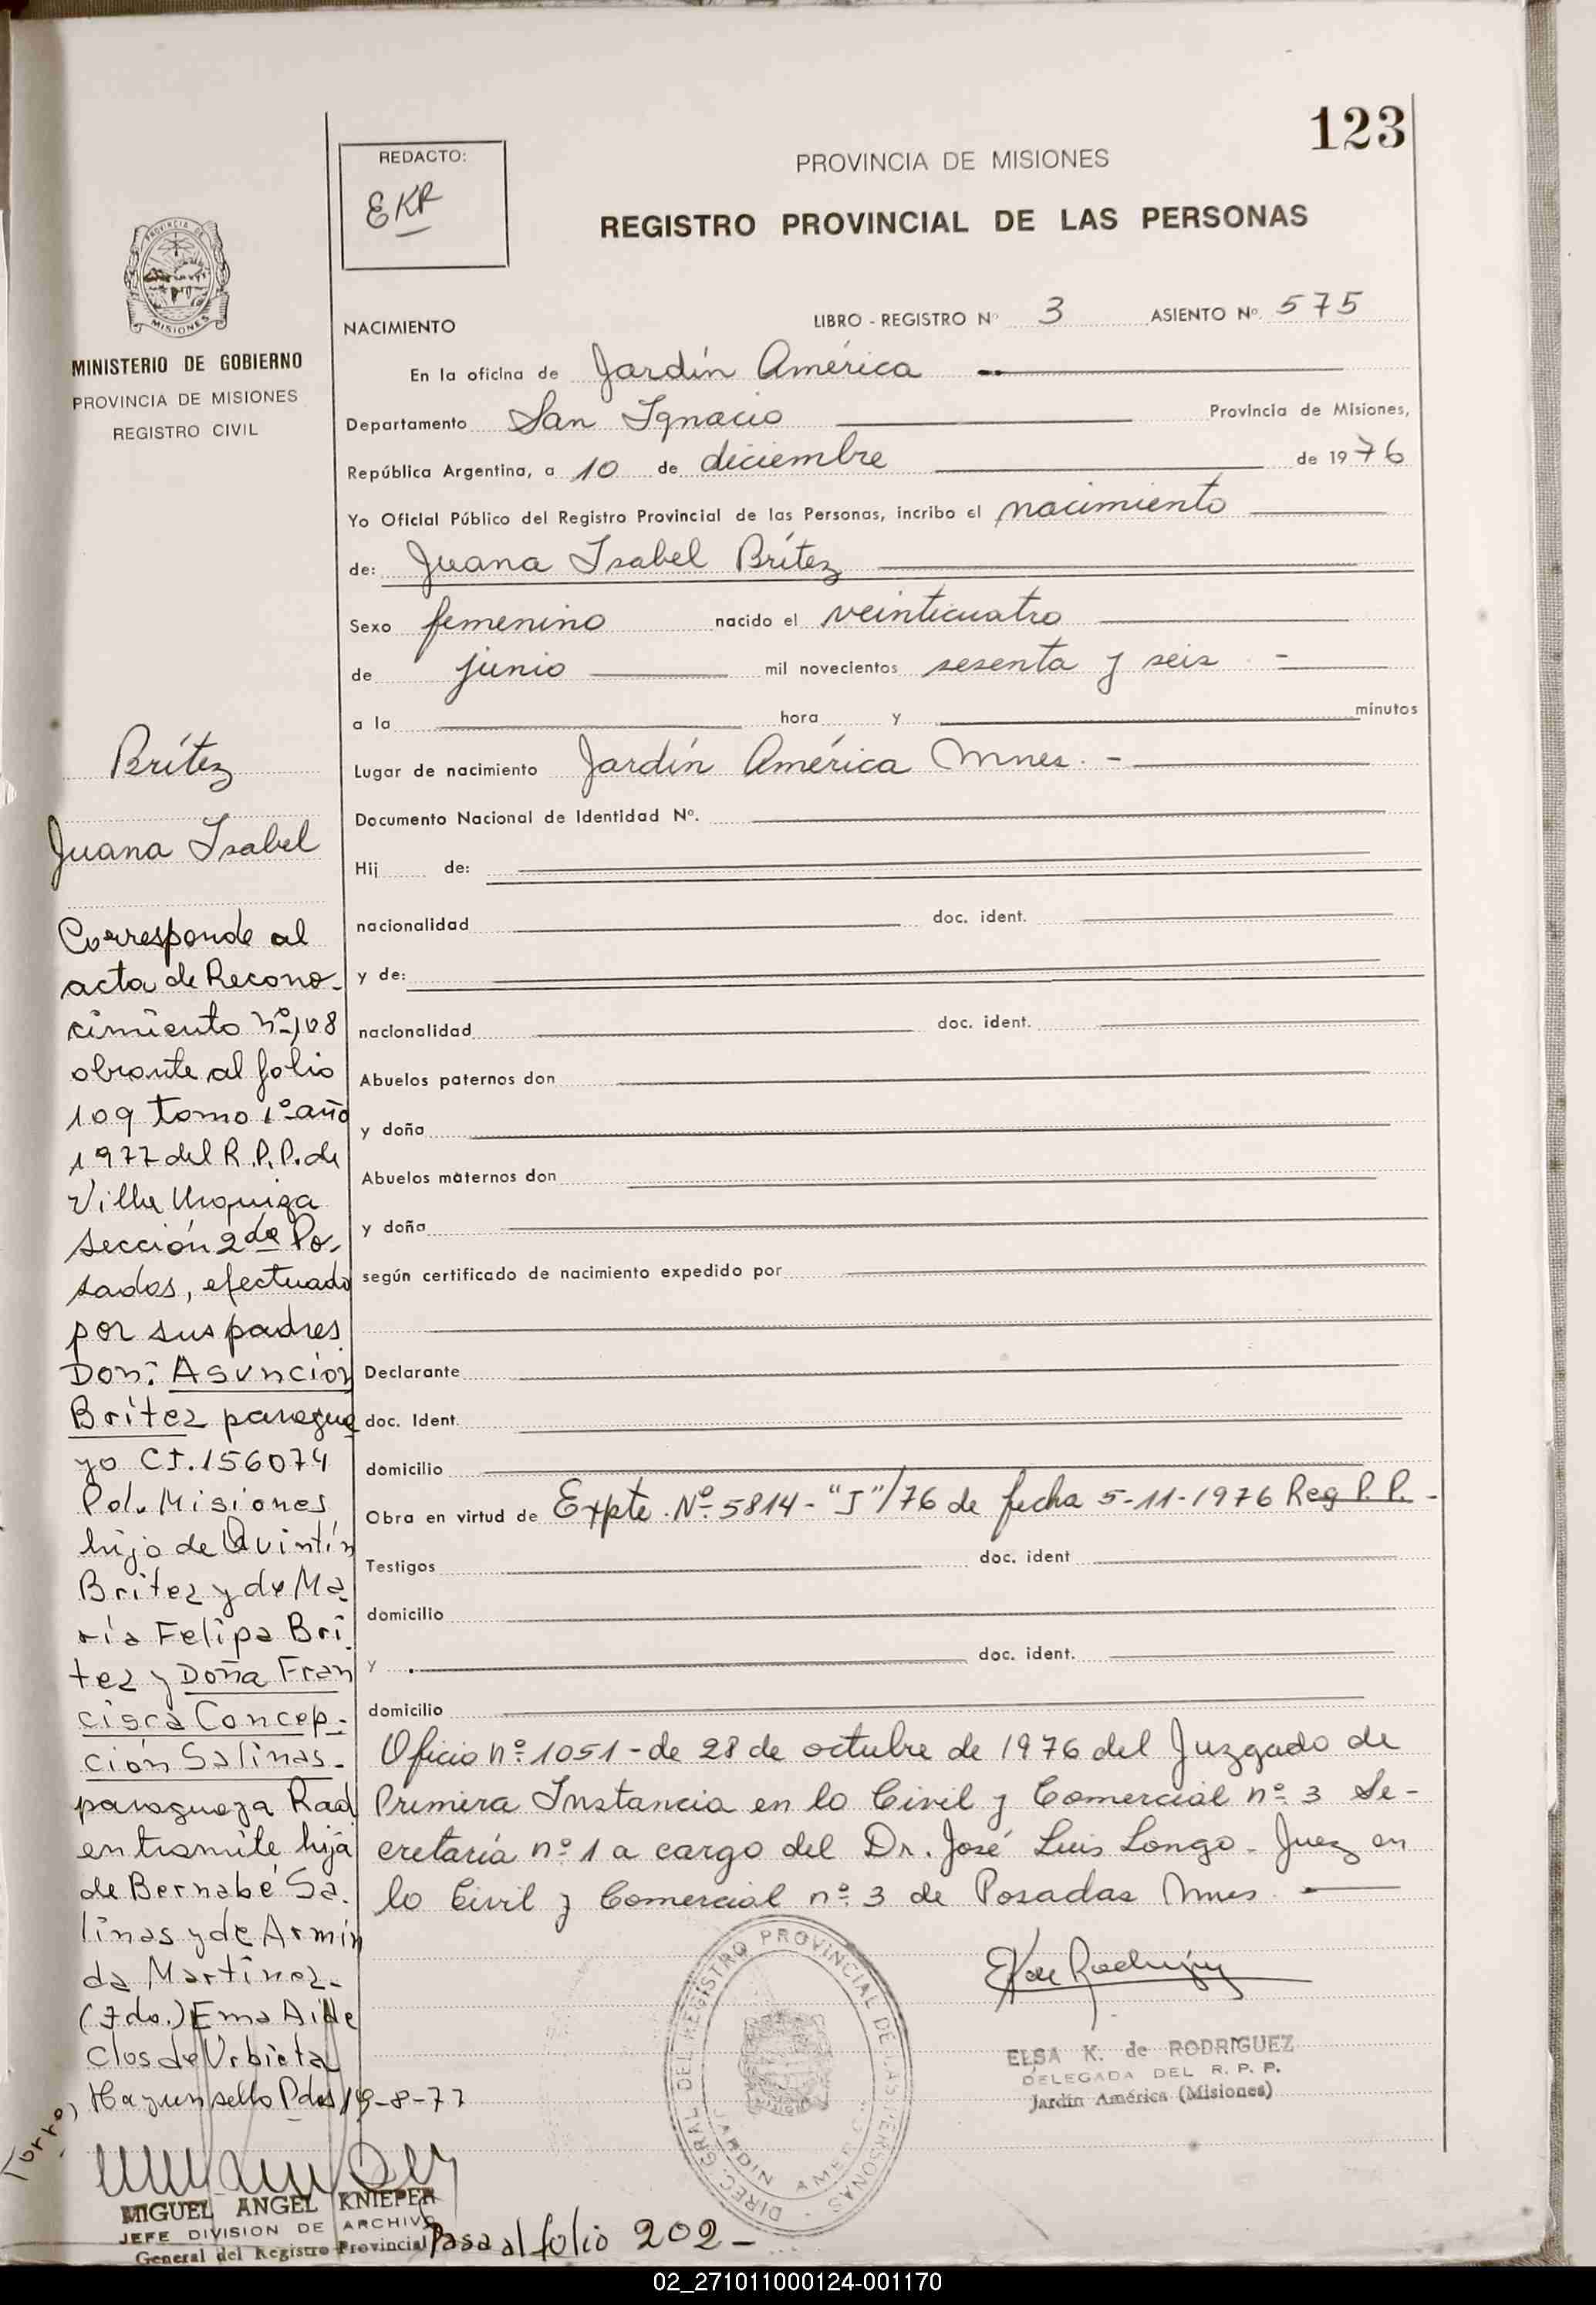 123
REDACTO:
EKR
PROVINCIA DE MISIONES
REGISTRO PROVINCIAL DE LAS PERSONAS
PROVINCIA DE
MISIONES
MINISTERIO DE GOBIERNO
PROVINCIA DE MISIONES
REGISTRO CIVIL
NACIMIENTO LIBRO - REGISTRO Nº 3 ASIENTO Nº. 575
En la oficina de Jardín América
Departamento San Ignacio Provincia de Misiones,
República Argentina, a 10 de diciembre de 1976
Yo Oficial Público del Registro Provincial de las Personas, incribo el nacimiento
de: Juana Isabel Brítez
Sexo femenino nacido el veinticuatro
de junio mil novecientos sesenta y seis -
a la hora y minutos
Lugar de nacimiento Jardín América Mnes. -
Documento Nacional de Identidad Nº.
Hij de:
nacionalidad doc. ident.
y de:
nacionalidad doc. ident.
Abuelos paternos don
y doña
Abuelos maternos don
y doña
según certificado de nacimiento expedido por
Declarante
doc. Ident.
domicilio
Obra en virtud de Expte. Nº 5814-"J"/76 de fecha 5-11-1976 Reg P.P. -
Testigos doc. ident
domicilio
y doc. ident.
domicilio
Oficio nº 1051 - de 28 de octubre de 1976 del Juzgado de
Primera Instancia en lo Civil y Comercial nº 3 Se-
cretaría nº 1 a cargo del Dr. José Luis Longo - Juez en
lo Civil y Comercial nº 3 de Posadas Mnes.
Brítez
Juana Isabel
Corresponde al
acta de Recono-
cimiento nº 108
obrante al folio
109 tomo 1º año
1977 del R.P.P. de
Villa Urquiza
sección 2da Po-
sadas, efectuado
por sus padres
Don: Asunción
Britez paragua
yo CI. 156074
Pol. Misiones
hijo de Quintín
Britez y de Ma
ría Felipa Bri
tez y Doña Fran
cisca Concep-
ción Salinas-
paraguaya Rad
en tramite hija
de Bernabé Sa.
linas y de Armin
da Martinez-
(Fdo.) Ema Aide
Clos de Urbieta
Hay un sello Pdas 19-8-77
Torres
E K de Rodriguez
ELSA K. de RODRIGUEZ
DELEGADA DEL R. P. P.
Jardín América (Misiones)
DIREC. GRAL DEL REGISTRO PROVINCIAL DE LAS PERSONAS
JARDIN AMERICA
MIGUEL ANGEL KNIEPER
JEFE DIVISION DE ARCHIVO
General del Registro Provincial
Pasa al folio 202 -
02_271011000124-001170